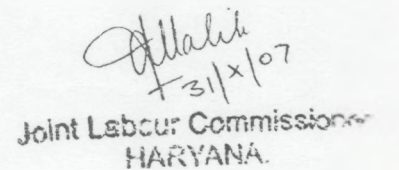 Malik
31/X/07
Joint Labour Commissioner
HARYANA.